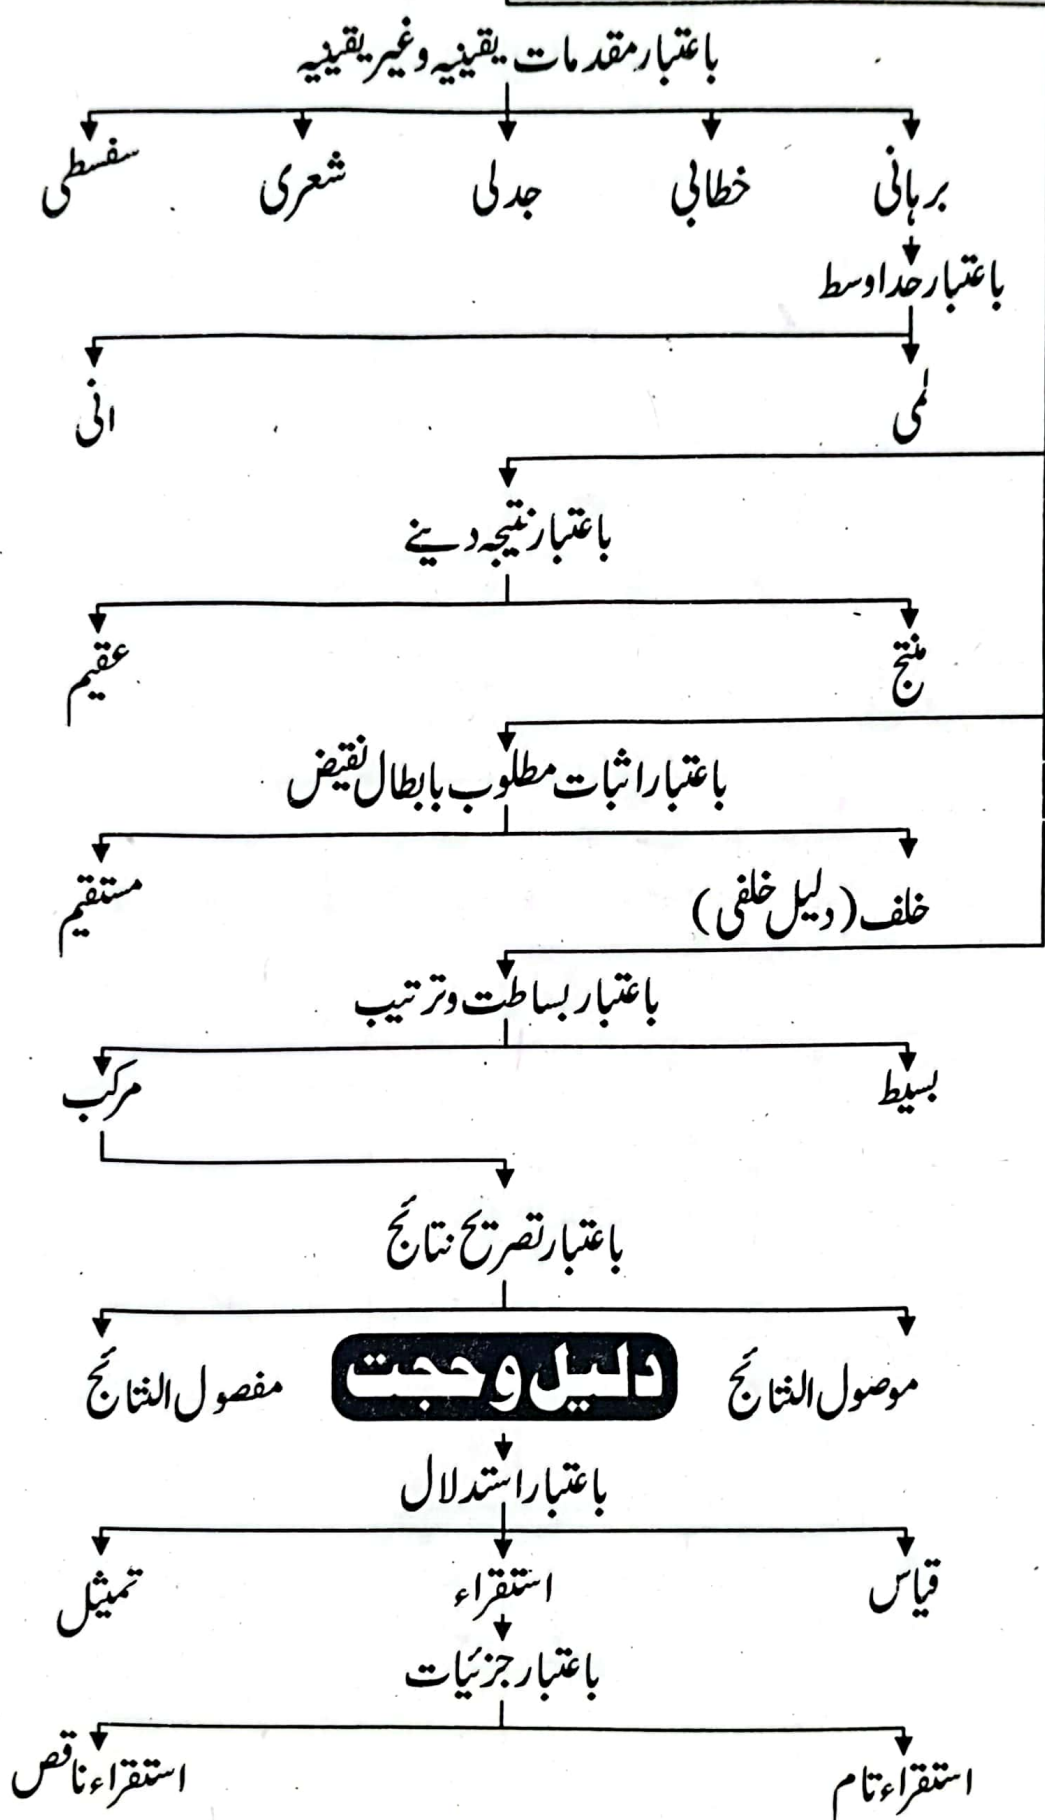 باعتبار مقدمات یقینیہ وغیر یقینیہ
برہانی خطابی جدلی شعری سفسطی
باعتبار حد اوسط
لمی انی
باعتبار نتیجہ دینے
منتج عقیم
باعتبار اثبات مطلوب بابطال نقیض
خلف (دلیل خلفی) مستقیم
باعتبار بساطت وترتیب
بسیط مرکب
باعتبار تصریح نتائج
موصول النتائج دلیل وحجت مفصول النتائج
باعتبار استدلال
قیاس استقراء تمثیل
باعتبار جزئیات
استقراء تام استقراء ناقص